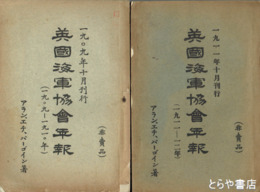 一九〇九年十月刊行
英國海軍協會年報
(一九〇九―一九一〇年)
(非賣品)
アラン、エチ、バーゴイン著
一九一一年十月刊行
英國海軍協會年報
(一九一一―一二年)
(非賣品)
アランエチ、バーゴイン著
とらや書房